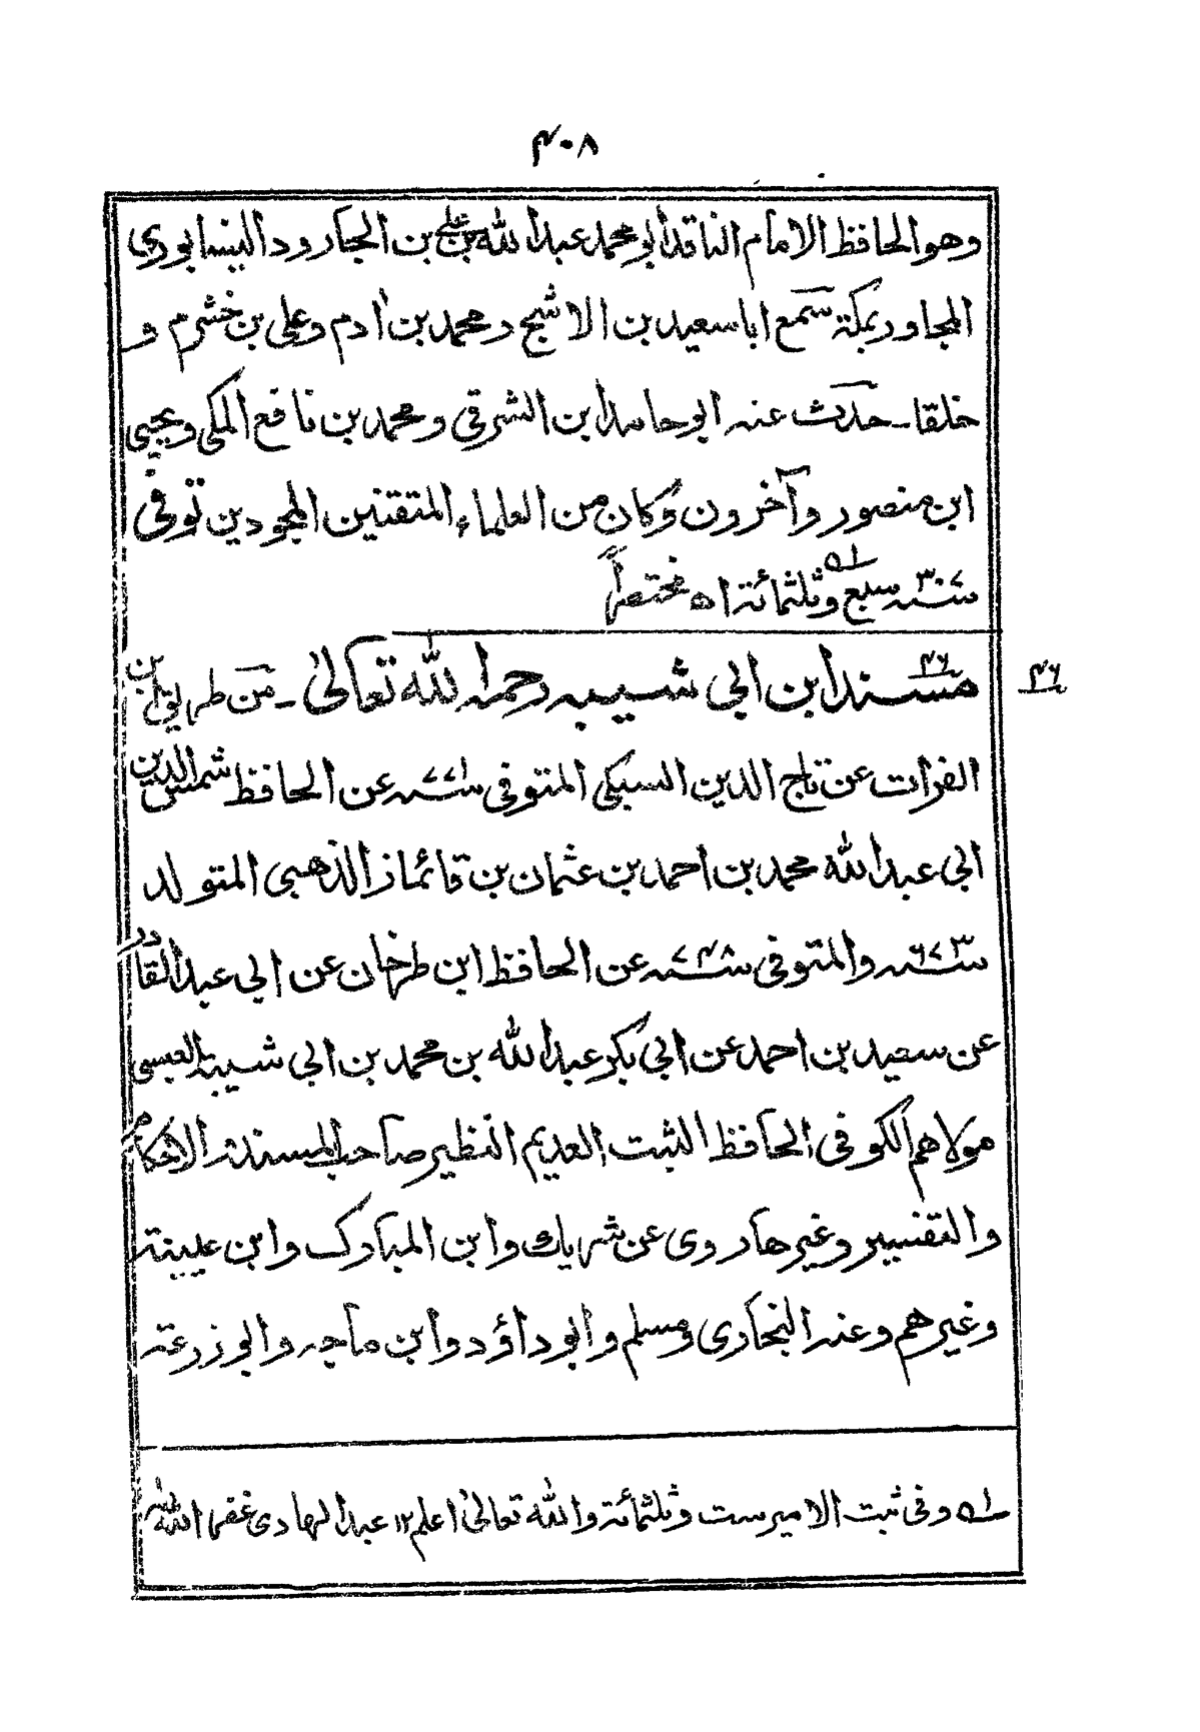 ۴۰۸
وهو الحافظ الامام الناقد ابو محمد عبد الله بن علي بن الجارود النيسابوري
المجاور بمكة سمع ابا سعيد بن الاشج ومحمد بن اٰدم وعلي بن خشرم و
خلقا ۔ حدث عنه ابو حامد ابن الشرقي ومحمد بن نافع المكي ويحيى
ابن منصور وآخرون وكان من العلماء المتقنين المجودين توفى
سنه ۳۰۷ سبع وثلثمائة اھ مختصراً
مسند ابن ابي شيبه رحمه الله تعالىٰ ۔ من طريق ابن ۴۶
الفرات عن تاج الدين السبكي المتوفى سنه ۷۷۱ عن الحافظ شمس الدين
ابي عبد الله محمد بن احمد بن عثمان بن قائماز الذهبى المتولد
سنه ۶۷۳ والمتوفى سنه ۷۴۸ عن الحافظ ابن طرخان عن ابي عبد القادر
عن سعيد بن احمد عن ابي بكر عبد الله بن محمد بن ابي شيبه العبسى
مولاهم الكوفى الحافظ الثبت العديم النظير صاحب المسند والاحكام
والتفسير وغيرها روى عن شريك وابن المبارك وابن عيينة
وغيرهم وعنه البخارى ومسلم وابو داؤد وابن ماجه وابو زرعة
۱ه وفى ثبت الامير ست وثلثمائة والله تعالىٰ اعلم ۱۲ عبد الهادى غفر الله له